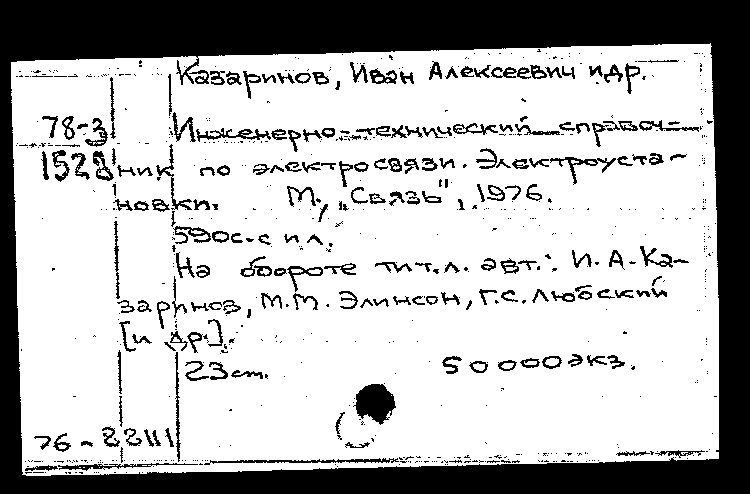 Казаринов, Иван Алексеевич и др.
78-3 Инженерно-технический справоч-
1528 ник по электросвязи. Электроуста-
новки. М., "Связь", 1976.
590с. с ил.
На обороте тит.л. авт.: И.А. Ка-
заринов, М.М. Элинсон, Г.С. Любский
[и др.].
23 см. 50 000 экз.
76-22111